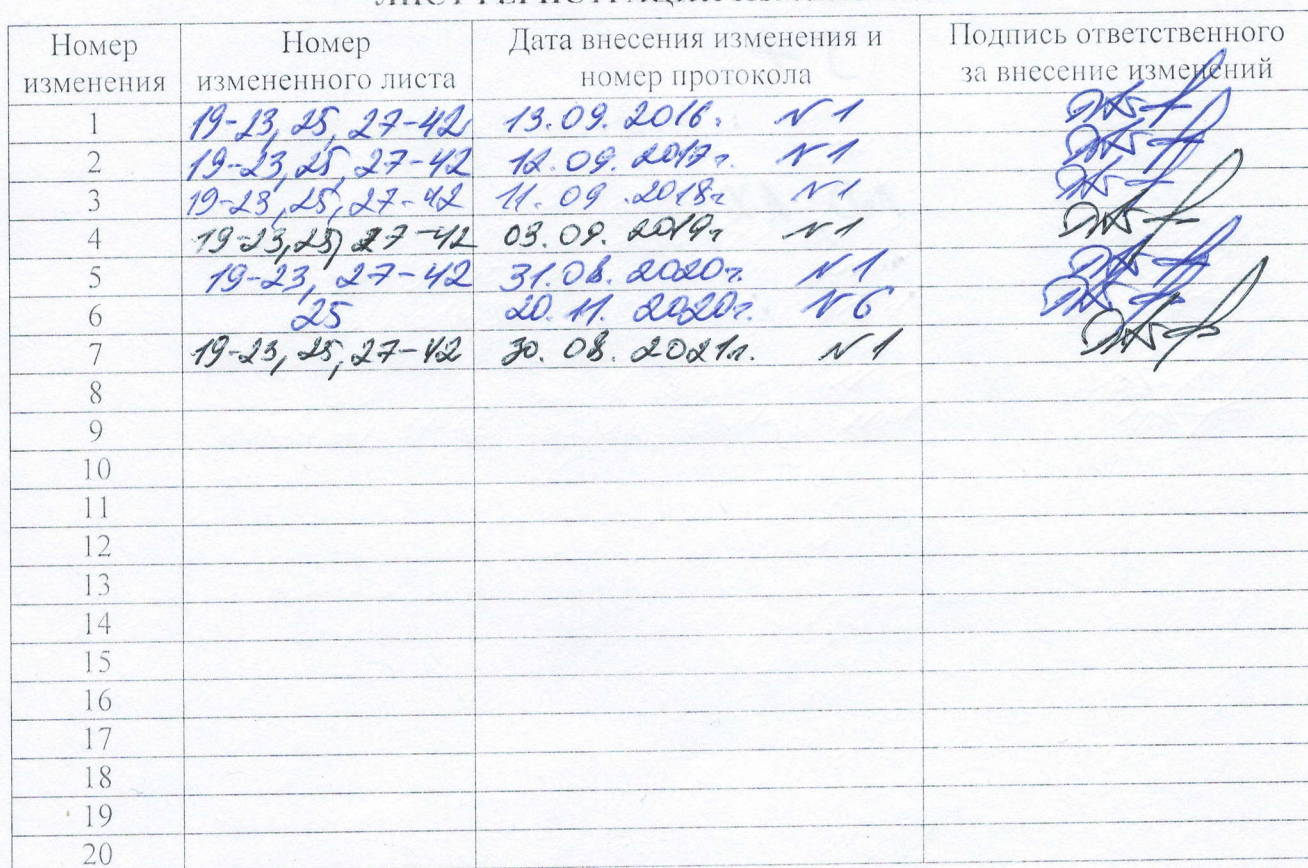 ЛИСТ РЕГИСТРАЦИИ
Номер изменения | Номер измененного листа | Дата внесения изменения и номер протокола | Подпись ответственного за внесение изменений
1 | 19-23, 25, 27-42 | 13.09.2016г. N1
2 | 19-23, 25, 27-42 | 12.09.2017г. N1
3 | 19-23, 25, 27-42 | 11.09.2018г N1
4 | 19-23, 25, 27-42 | 03.09.2019г N1
5 | 19-23, 27-42 | 31.08.2020г N1
6 | 25 | 20.11.2020г. N6
7 | 19-23, 25, 27-42 | 30.08.2021г. N1
8
9
10
11
12
13
14
15
16
17
18
19
20